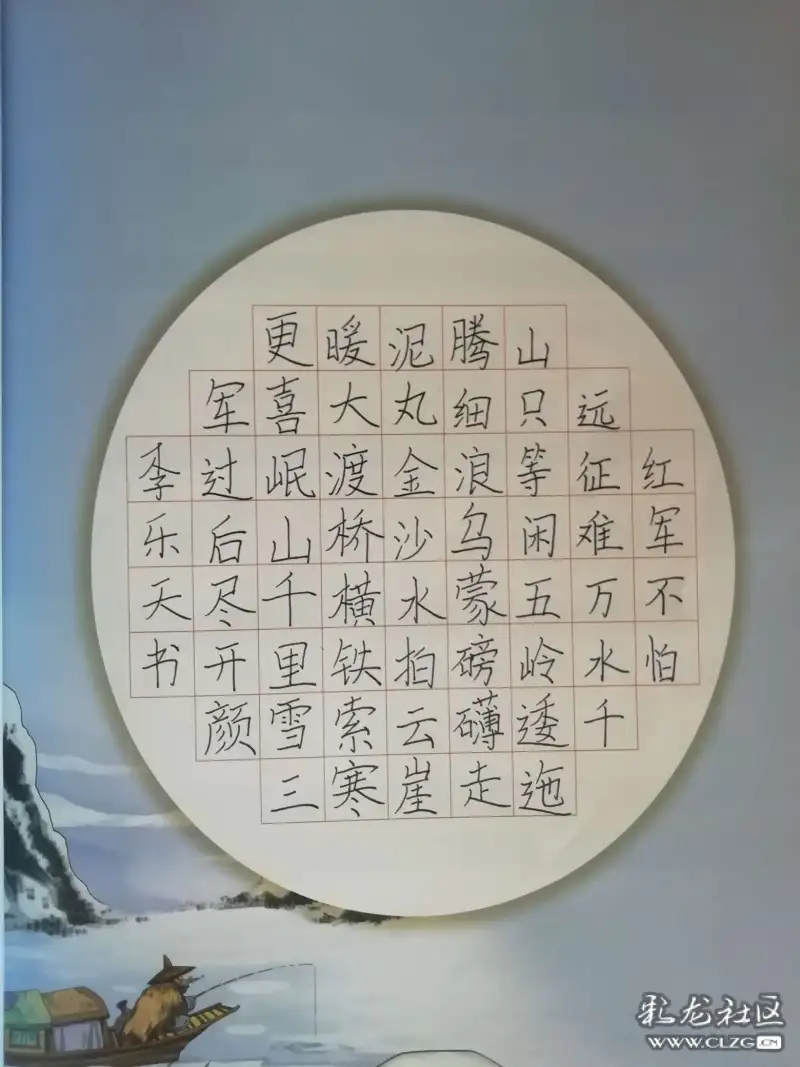 红军不怕
远征难万水千
山只等闲五岭逶迤
腾细浪乌蒙磅礴走
泥丸金沙水拍云崖
暖大渡桥横铁索寒
更喜岷山千里雪三
军过后尽开颜
李乐天书
彩龙社区
WWW.CLZG.CN